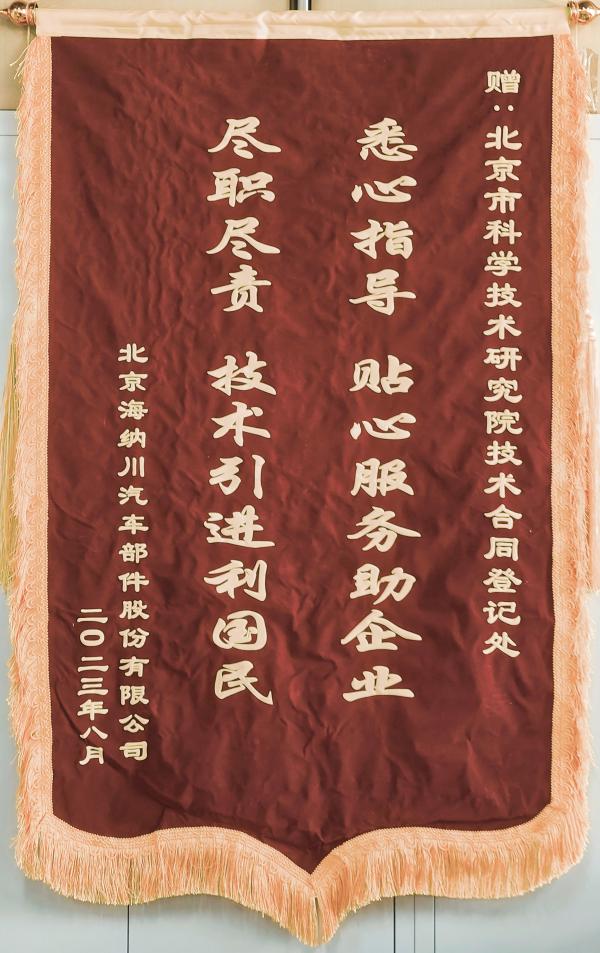 赠：北京市科学技术研究院技术合同登记处
悉心指导 贴心服务助企业
尽职尽责 技术引进利国民
北京海纳川汽车部件股份有限公司
二〇二三年八月